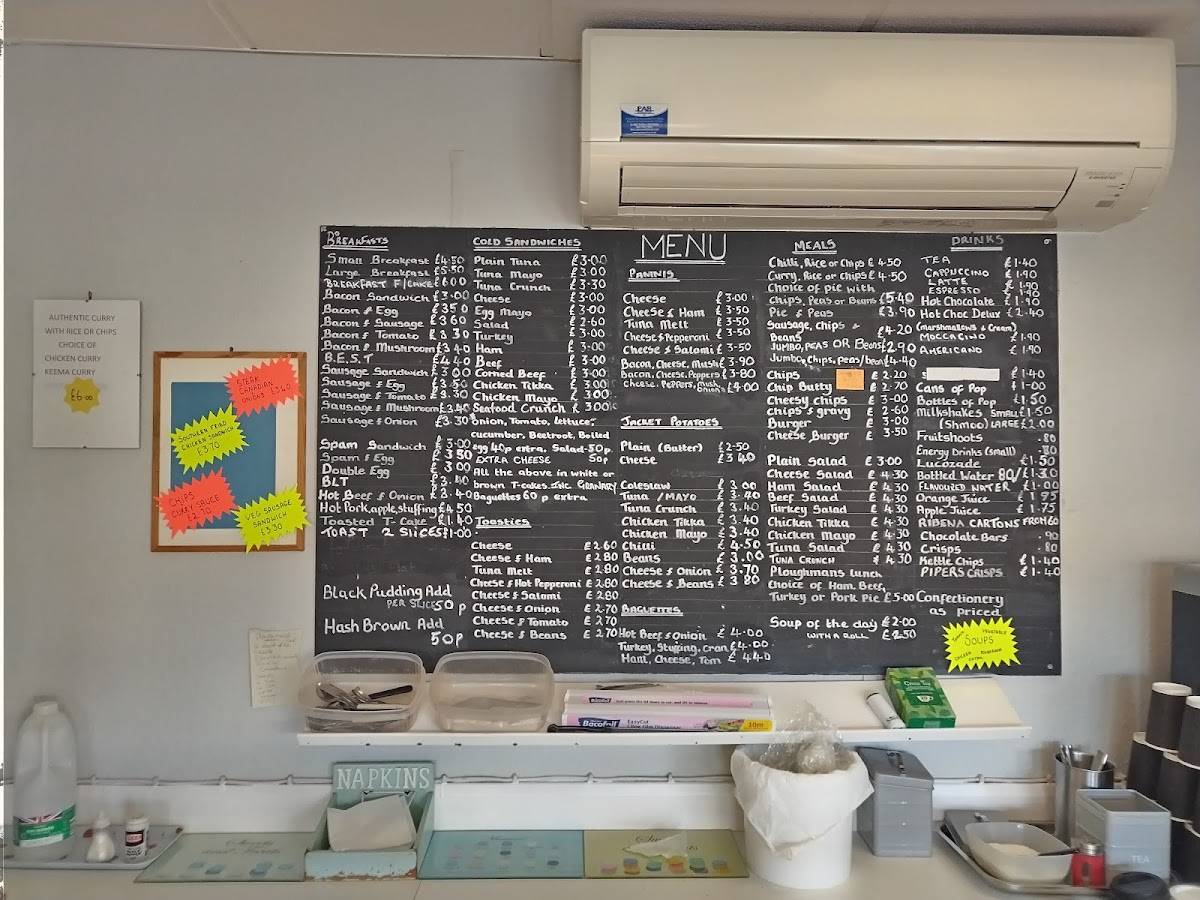 AUTHENTIC CURRY
WITH RICE OR CHIPS
CHOICE OF
CHICKEN CURRY
KEEMA CURRY
£6.00
STEAK
CANADIAN
ONIONS £3.40
SOUTHERN FRIED
CHICKEN SANDWICH
£3.70
CHIPS
CURRY SAUCE
£2.70
VEG SAUSAGE
SANDWICH
£3.30
BREAKFASTS
Small Breakfast £4.50
Large Breakfast £5.50
BREAKFAST F/CAKE £6.00
Bacon Sandwich £3.00
Bacon & Egg £3.50
Bacon & Sausage £3.60
Bacon & Tomato £3.30
Bacon & Mushroom £3.40
B.E.S.T £4.40
Sausage Sandwich £3.00
Sausage & Egg £3.50
Sausage & Tomato £3.30
Sausage & Mushroom £3.40
Sausage & Onion £3.30
Spam Sandwich £3.00
Spam & Egg £3.50
Double Egg £3.00
BLT £3.40
Hot Beef & Onion £3.40
Hot Pork, apple, stuffing £4.50
Toasted T-Cake £1.40
TOAST 2 SLICES £1.00
Black Pudding Add
PER SLICE 50p
Hash Brown Add
50p
COLD SANDWICHES
Plain Tuna £3.00
Tuna Mayo £3.00
Tuna Crunch £3.30
Cheese £3.00
Egg Mayo £3.00
Salad £2.60
Turkey £3.00
Ham £3.00
Beef £3.00
Corned Beef £3.00
Chicken Tikka £3.00
Chicken Mayo £3.00
Seafood Crunch £3.00
Onion, Tomato, Lettuce,
cucumber, Beetroot, Boiled
egg 40p extra, Salad-50p.
EXTRA CHEESE 50p
All the above in white or
brown T-cakes. INC GRANARY
Baguettes 60p extra
TOASTIES
Cheese £2.60
Cheese & Ham £2.80
Tuna Melt £2.80
Cheese & Hot Pepperoni £2.80
Cheese & Salami £2.80
Cheese & Onion £2.70
Cheese & Tomato £2.70
Cheese & Beans £2.70
MENU
PANINIS
Cheese £3.00
Cheese & Ham £3.50
Tuna Melt £3.50
Cheese & Pepperoni £3.50
Cheese & Salami £3.50
Bacon, Cheese, Mush £3.90
Bacon, Cheese, Peppers £3.80
Cheese, Peppers, Mush, Onion £4.00
JACKET POTATOES
Plain (Butter) £2.50
Cheese £3.40
Coleslaw £3.00
Tuna /MAYO £3.40
Tuna Crunch £3.40
Chicken Tikka £3.40
Chicken Mayo £3.40
Chilli £4.50
Beans £3.00
Cheese & Onion £3.70
Cheese & Beans £3.80
BAGUETTES
Hot Beef & Onion £4.00
Turkey, Stuffing, Cran £4.00
Ham, Cheese, Tom £4.40
MEALS
Chilli, Rice or Chips £4.50
Curry, Rice or Chips £4.50
Choice of pie with
Chips, Peas or Beans £5.40
Pie & Peas £3.90
Sausage, Chips & Beans £4.20
JUMBO, PEAS OR Beans £2.90
Jumbo, Chips, peas/bean £4.40
Chips £2.20
Chip Butty £2.70
Cheesy chips £3.00
Chips & gravy £2.60
Burger £3.00
Cheese Burger £3.50
Plain Salad £3.00
Cheese Salad £4.30
Ham Salad £4.30
Beef Salad £4.30
Turkey Salad £4.30
Chicken Tikka £4.30
Chicken Mayo £4.30
Tuna Salad £4.30
TUNA CRUNCH £4.30
Ploughmans Lunch
Choice of Ham, Beef,
Turkey or Pork Pie £5.00
Soup of the day £2.00
WITH A ROLL £2.50
DRINKS
TEA £1.40
CAPPUCCINO £1.90
LATTE £1.90
ESPRESSO £1.90
Hot Chocolate £1.90
Hot Choc Delux £2.40
(marshmallows & Cream)
MOCCACINO £1.90
AMERICANO £1.90
S £1.40
Cans of Pop £1.00
Bottles of Pop £1.50
Milkshakes SMALL £1.50
(Shmoo) LARGE £2.00
Fruitshoots .80
Energy Drinks (small) .80
Lucozade £1.50
Bottled Water 80/£1.30
FLAVOURED WATER £1.00
Orange Juice £1.75
Apple Juice £1.75
RIBENA CARTONS FROM 60
Chocolate Bars .90
Crisps .80
Kettle Chips £1.40
PIPERS CRISPS £1.40
Confectionery
as priced
VEGETABLE
SOUPS
CHICKEN
NAPKINS
Bacofoil
EasyCut
30m
TEA